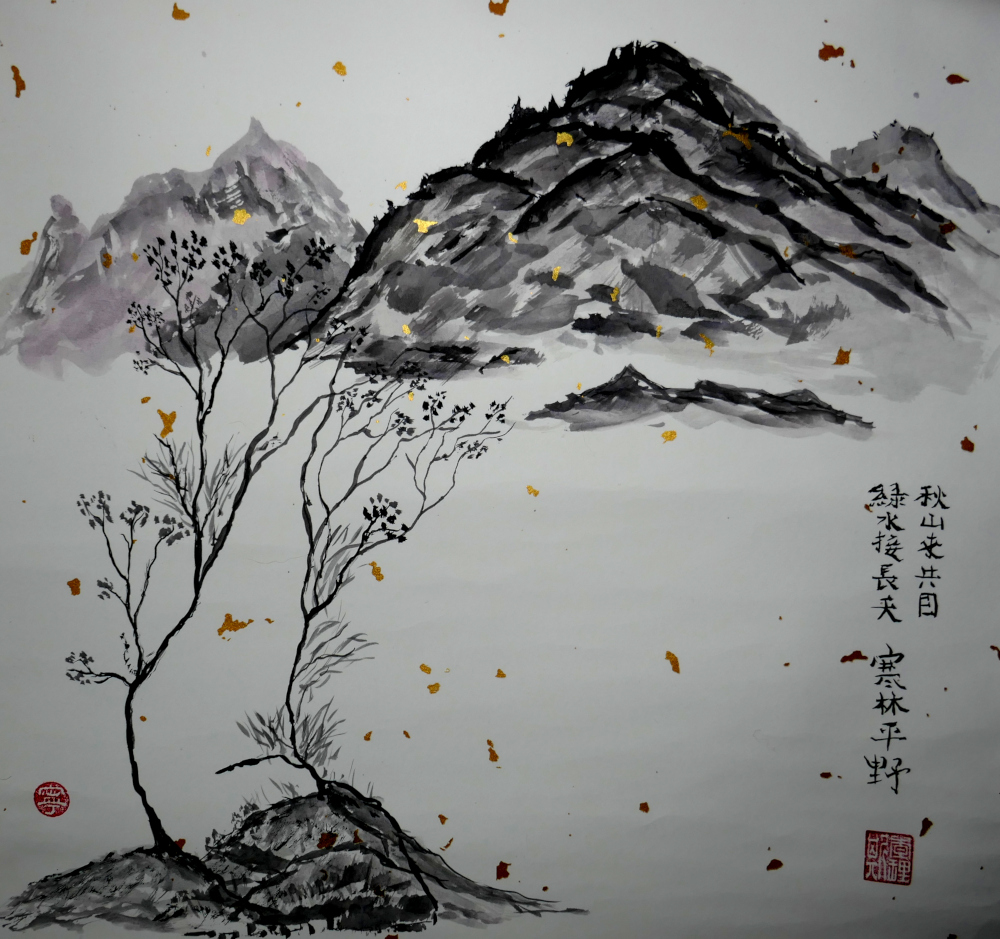 秋山来共目
綠水接長天 寒林平野
寧